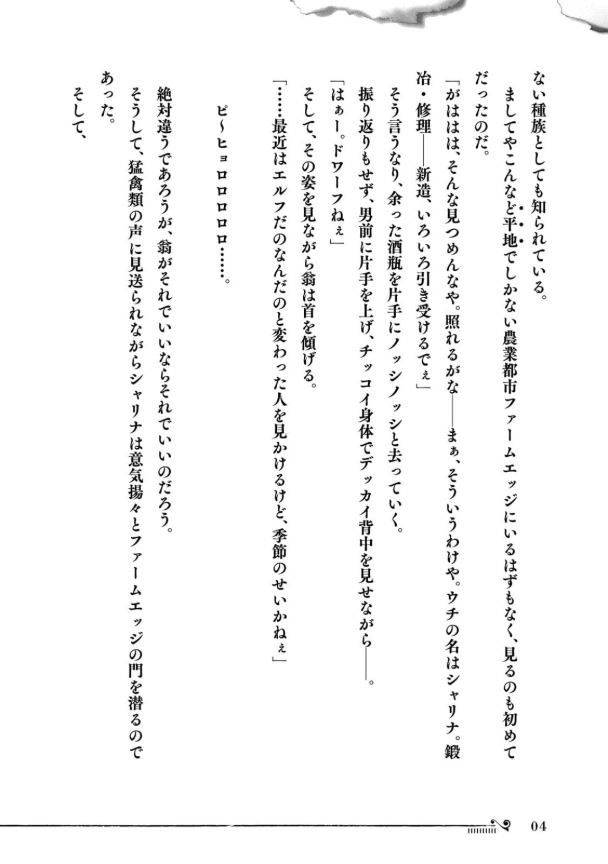 ない種族としても知られている。
ましてやこんなど平地でしかない農業都市ファームエッジにいるはずもなく、見るのも初めて
だったのだ。
「がははは、そんな見つめんなや。照れるがな――まぁ、そういうわけや。ウチの名はシャリナ。鍛
冶・修理――新造、いろいろ引き受けるでぇ」
そう言うなり、余った酒瓶を片手にノッシノッシと去っていく。
振り返りもせず、男前に片手を上げ、チッコイ身体でデッカイ背中を見せながら――。
「はぁー。ドワーフねぇ」
そして、その姿を見ながら翁は首を傾げる。
「……最近はエルフだのなんだのと変わった人を見かけるけど、季節のせいかねぇ」
ピ～ヒョロロロロロ……。
絶対違うであろうが、翁がそれでいいならそれでいいのだろう。
そうして、猛禽類の声に見送られながらシャリナは意気揚々とファームエッジの門を潜るので
あった。
そして、
04